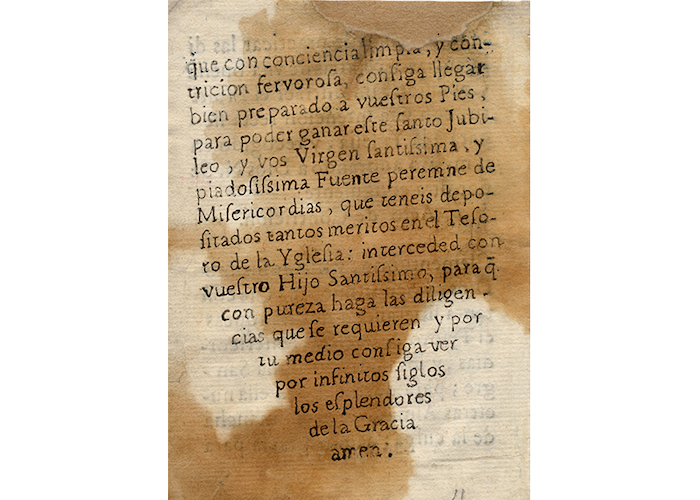 que con conciencia limpia, y con-
tricion fervoroſa, conſiga llegar
bien preparado a vueſtros Pies,
para poder ganar eſte ſanto Jubi-
leo, y vos Virgen ſantiſsima, y
piadoſiſsima Fuente peremine de
Miſericordias, que teneis depo-
ſitados tantos meritos en el Teſo-
ro de la Ygleſia: interceded con
vueſtro Hijo Santiſsimo, para q̄
con pureza haga las diligen-
cias que ſe requieren y por
tu medio conſiga ver
por infinitos ſiglos
los eſplendores
de la Gracia
amen.